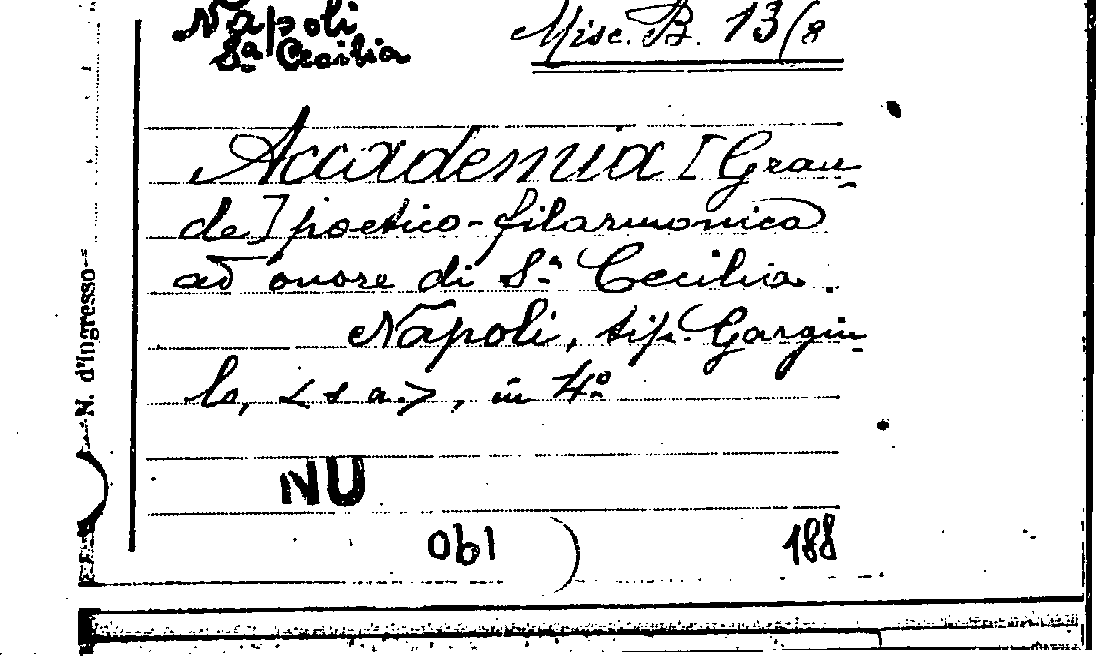 Napoli
Sª Cecilia
Misc. B. 13/8
Accademia [Gran-
de] poetico-filarmonica
ad onore di Sª Cecilia.
Napoli, tip. Gargiu-
lo, <s a.>, in 4º
N. d'Ingresso
NU
obl
188